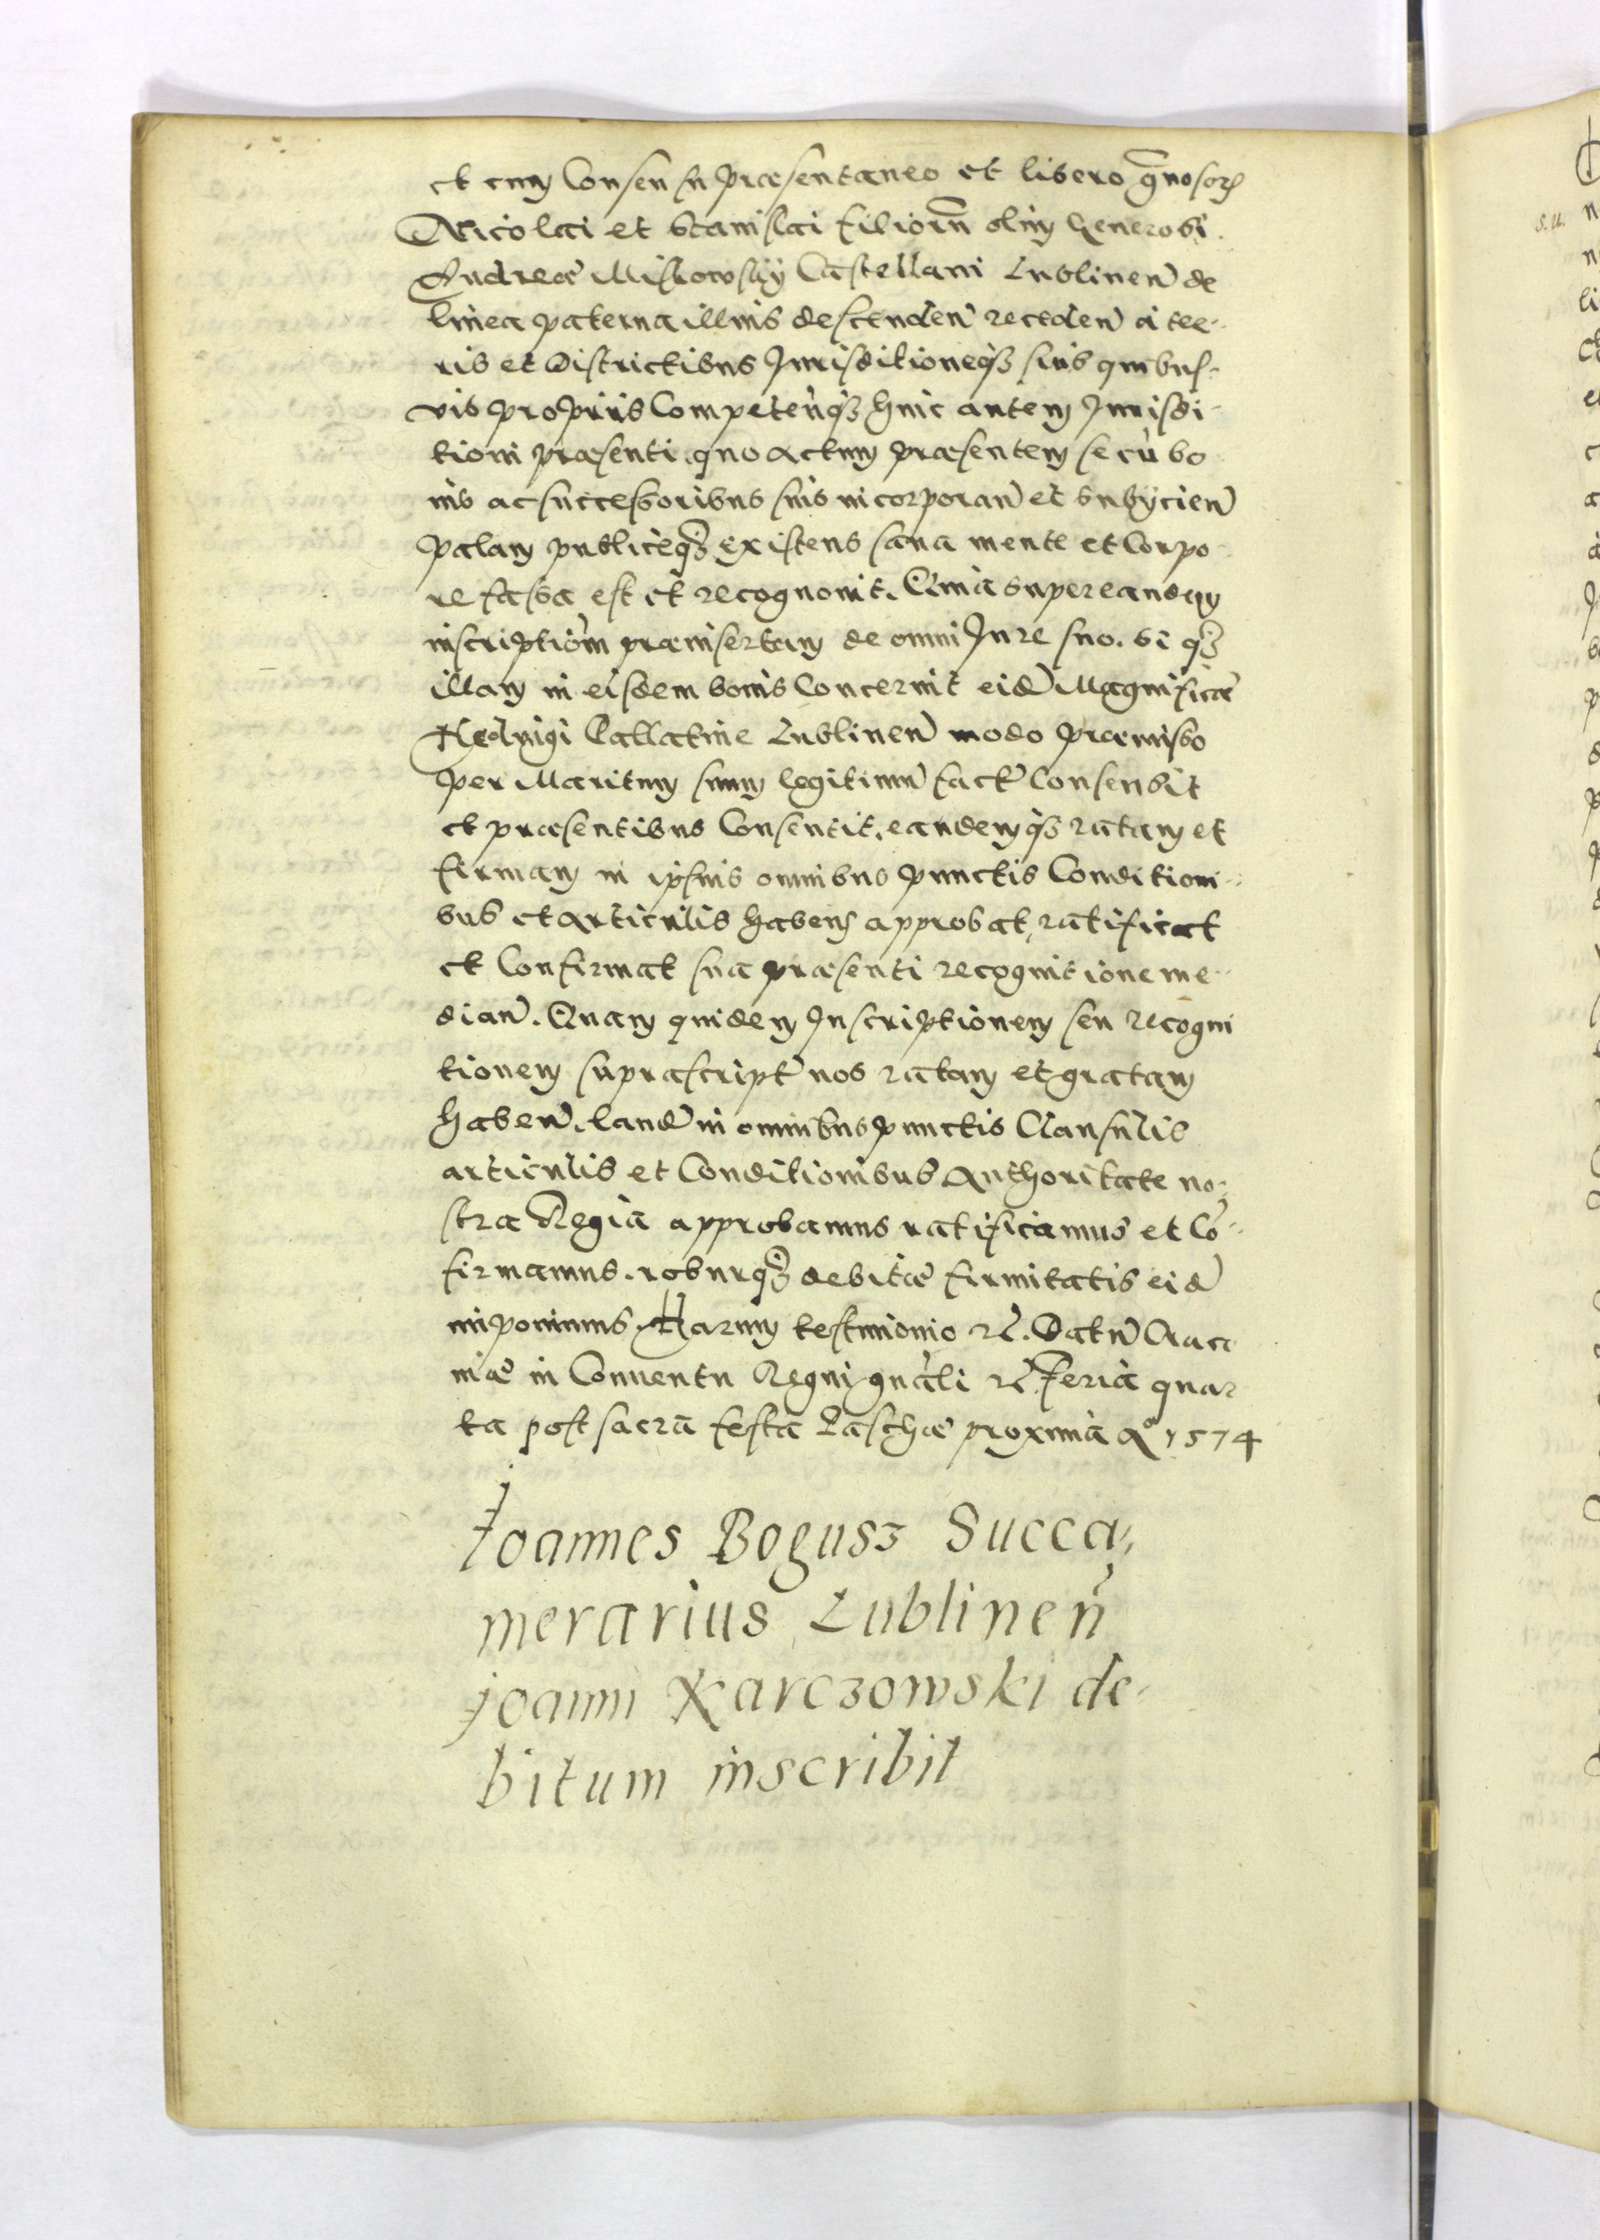 et cum Consensu præsentaneo et libero gnosorum
Nicolai et Stanislai filiorum olim Generosi
Andreæ Miskowsky Castellani Lublinen̄ de
linea paterna illius descenden̄ receden̄ a ter-
ris et Districtibus Jurisditioneq3 suis quibus-
vis propriis Competen̄q3 huic autem Jurisdi-
tioni præsenti quo actum præsentem se cū bo
nis ac successoribus suis incorporan̄ et subÿcien̄
palam publiceq3 existens sana mente et Corpo-
re fassa est et recognovit. Quia super eandem
inscription̄ præinsertam de omni Jure suo. si q3
illam in eisdem bonis Concernit eid̄ Magnificæ
Hedvigi Pallatinæ Lublinen̄ modo præmisso
per Maritum suum legitimum̄ fact̄ Consensit
et præsentibus Consentit, eandemq3 ratam et
firmam in ipsius omnibus punctis Condition-
bus et articulis habens approbat, ratificat
et Confirmat sua præsenti recognitione me-
dian̄. Quam quidem Inscriptionem seu recogni
tionem suprascript̄ nos ratam et gratam
haben̄. eand̄ in omnibus punctis Clausulis
articulis et Conditionibus Authoritate no-
stra Regia approbamus ratificamus et Cō-
firmamus. roburq3 debitæ firmitatis eid̄
imponimus. Harum testimonio rē. Datum̄ Craco
niæ in Conventu Regni gnāli rē Feria quar
ta post sacra festa Paschæ proxima Aº 1574
Joannes Bogusz Succa,
merarius Lublinen̄
joanni Karczowski de-
bitum inscribit
s. u.